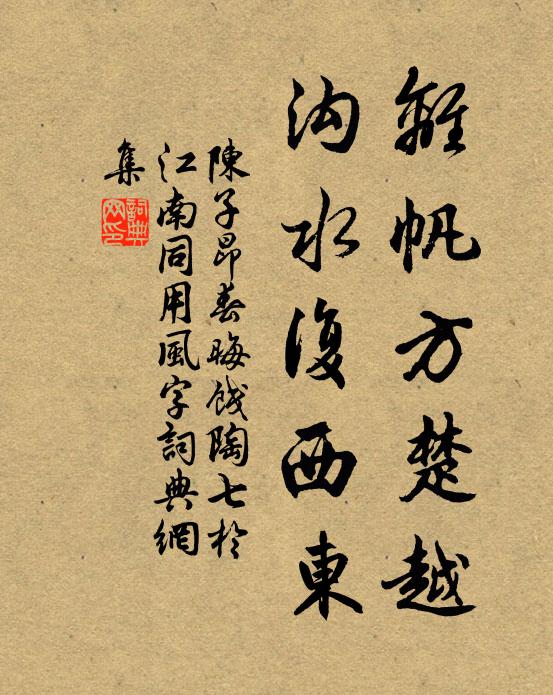 離帆方楚越
沟水復西東
陳子昂春晦餞陶七於
江南同用風字詞典網
集
詞典
网印